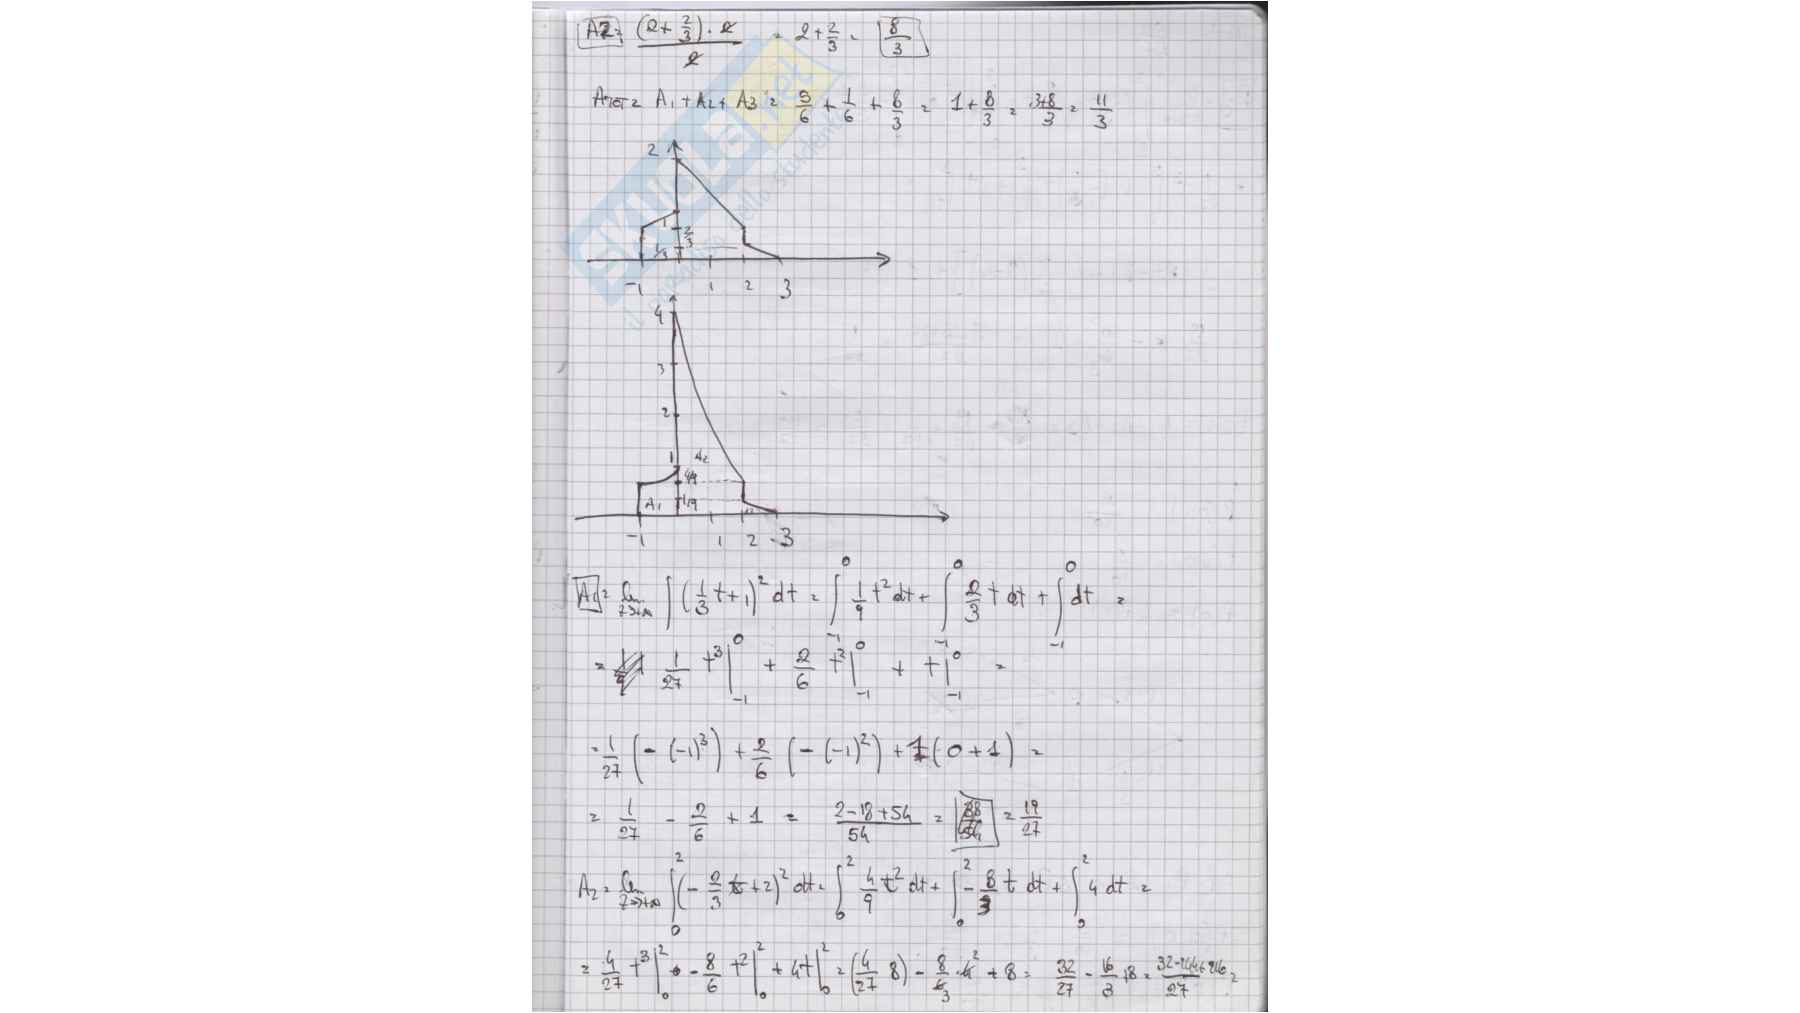 A2 = (2 + 2/3) · 2 / 2 = 2 + 2/3 = 8/3
ATOT = A1 + A2 + A3 = 5/6 + 1/6 + 8/3 = 1 + 8/3 = 3+8/3 = 11/3
SKUOLa.net
2
1
2/3
1/3
-1 1 2 3
4
3
2
1 A2
4/9
A1 1/9
-1 1 2 3
A1 = lim ∫ (1/3 t + 1)² dt = ∫_{-1}^{0} 1/9 t² dt + ∫_{-1}^{0} 2/3 t dt + ∫_{-1}^{0} dt =
= 1/27 t³ |_{-1}^{0} + 2/6 t² |_{-1}^{0} + t |_{-1}^{0} =
= 1/27 (- (-1)³) + 2/6 (- (-1)²) + 1 (0 + 1) =
= 1/27 - 2/6 + 1 = 2-18+54/54 = 38/54 = 19/27
A2 = lim ∫_{0}^{2} (- 2/3 t + 2)² dt = ∫_{0}^{2} 4/9 t² dt + ∫_{0}^{2} - 8/3 t dt + ∫_{0}^{2} 4 dt =
= 4/27 t³ |_{0}^{2} - 8/6 t² |_{0}^{2} + 4t |_{0}^{2} = (4/27 8) - 8/6 4 + 8 = 32/27 - 16/3 + 8 = 32-144+216/27 =